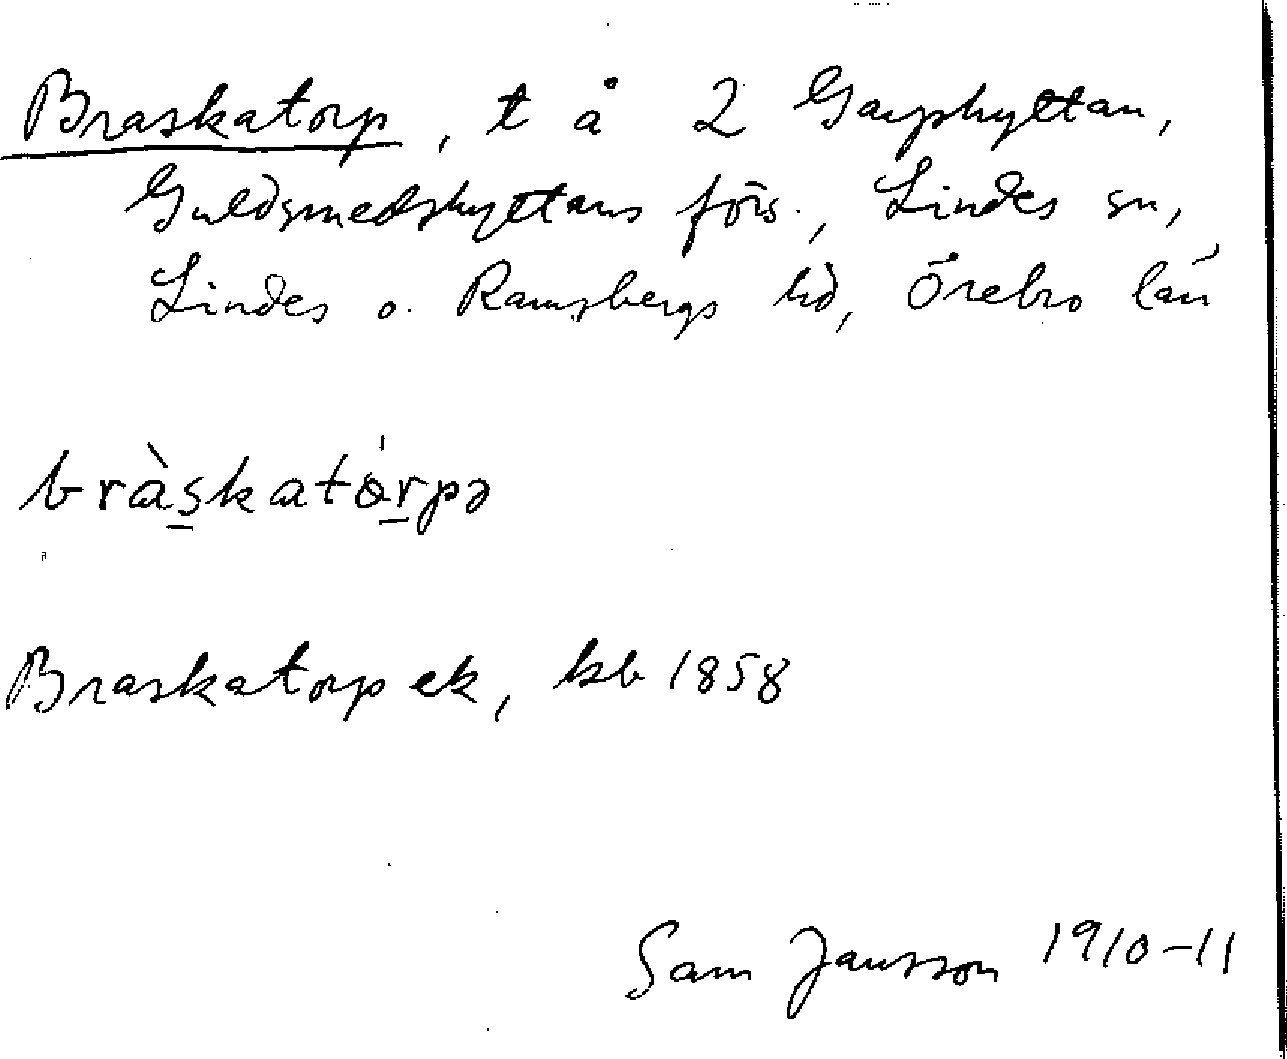 Braskatorp, t å 2 Garphyttan,
Guldsmedshyttans förs., Lindes sn,
Lindes o. Ramsbergs hd, Örebro län
bràs̠katór̠pə
Braskatorp ek, kb 1858
Sam Jansson 1910-11